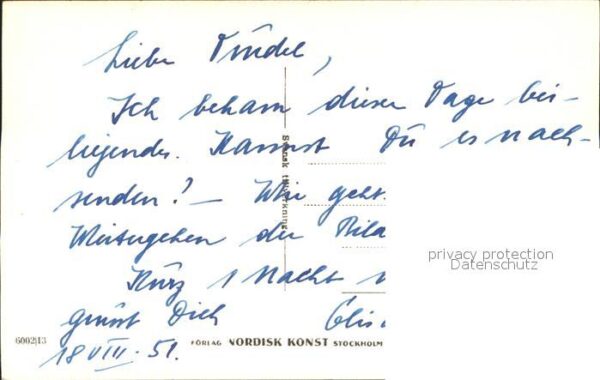 Liebe Tindel,
Ich bekam dieser Tage bei-
liegendes. Kannst Du es nach-
senden? – Wie geht
Weitergehen der
Kurz 1 Nacht
grüsst Dich
18 VIII. 51.
Svensk tillverkning
6002/13
FÖRLAG NORDISK KONST STOCKHOLM
privacy protection
Datenschutz